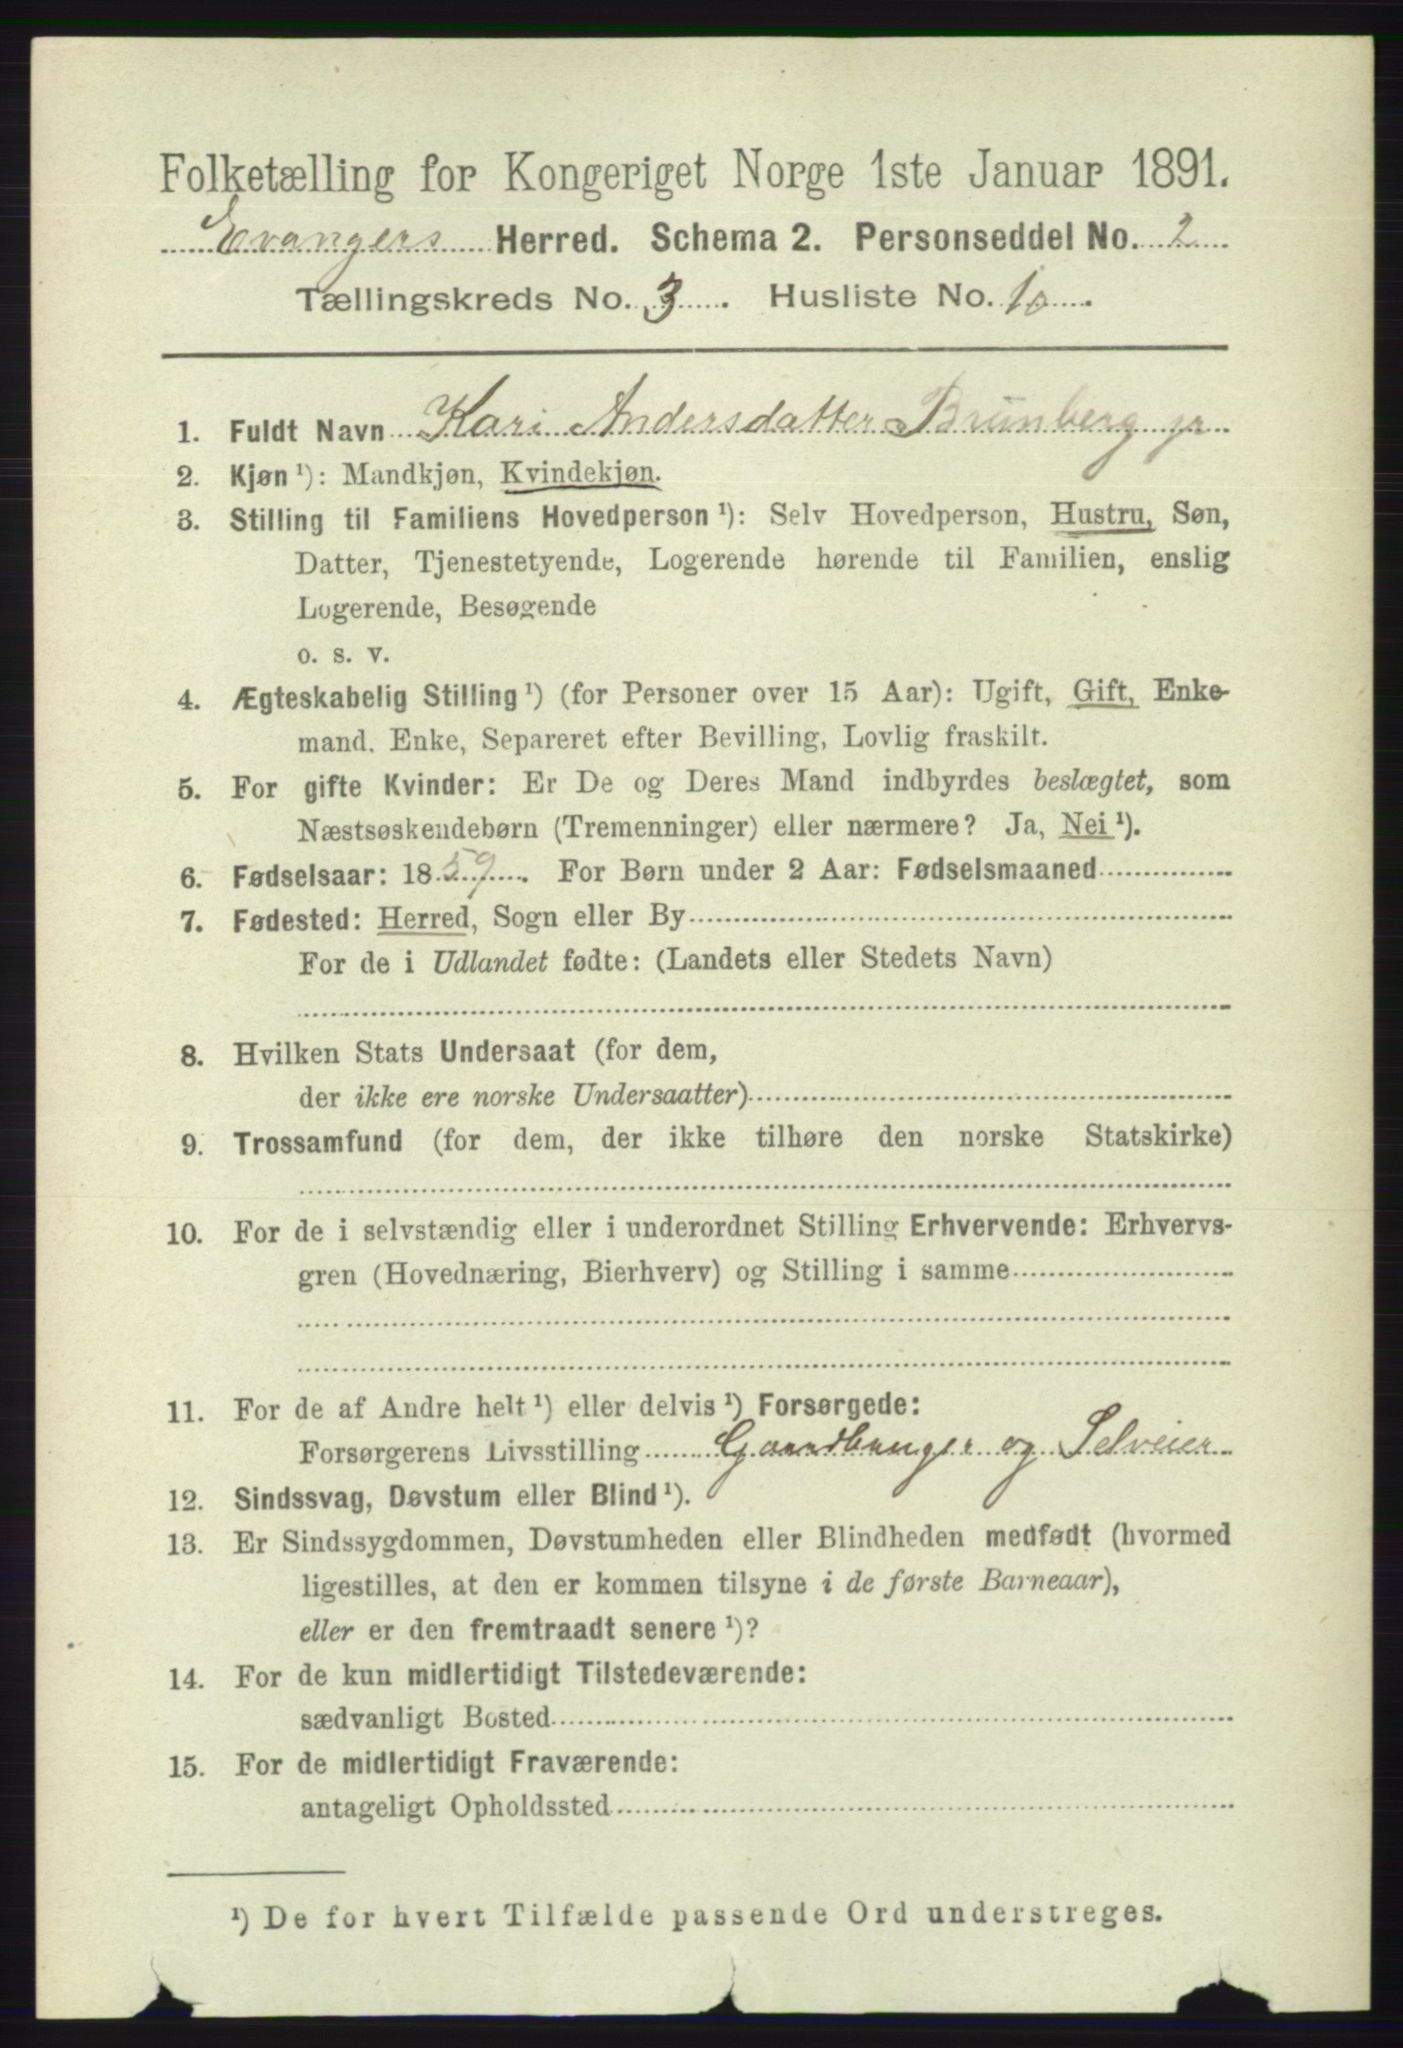 Folketælling for Kongeriget Norge 1ste Januar 1891.
Evangers Herred. Schema 2. Personseddel No. 2
Tællingskreds No. 3. Husliste No. 10.
1. Fuldt Navn Kari Andersdatter Brunberg gr
2. Kjøn ¹): Mandkjøn, Kvindekjøn.
3. Stilling til Familiens Hovedperson ¹): Selv Hovedperson, Hustru, Søn,
Datter, Tjenestetyende, Logerende hørende til Familien, enslig
Logerende, Besøgende
o. s. v.
4. Ægteskabelig Stilling ¹) (for Personer over 15 Aar): Ugift, Gift, Enke-
mand, Enke, Separeret efter Bevilling, Lovlig fraskilt.
5. For gifte Kvinder: Er De og Deres Mand indbyrdes beslægtet, som
Næstsøskendebørn (Tremenninger) eller nærmere? Ja, Nei ¹).
6. Fødselsaar: 1859. For Børn under 2 Aar: Fødselsmaaned
7. Fødested: Herred, Sogn eller By
For de i Udlandet fødte: (Landets eller Stedets Navn)
8. Hvilken Stats Undersaat (for dem,
der ikke ere norske Undersaatter)
9. Trossamfund (for dem, der ikke tilhøre den norske Statskirke)
10. For de i selvstændig eller i underordnet Stilling Erhvervende: Erhvervs-
gren (Hovednæring, Bierhverv) og Stilling i samme
11. For de af Andre helt ¹) eller delvis ¹) Forsørgede:
Forsørgerens Livsstilling Gaardbruger og Selveier
12. Sindssvag, Døvstum eller Blind ¹).
13. Er Sindssygdommen, Døvstumheden eller Blindheden medfødt (hvormed
ligestilles, at den er kommen tilsyne i de første Barneaar),
eller er den fremtraadt senere ¹)?
14. For de kun midlertidigt Tilstedeværende:
sædvanligt Bosted
15. For de midlertidigt Fraværende:
antageligt Opholdssted
¹) De for hvert Tilfælde passende Ord understreges.